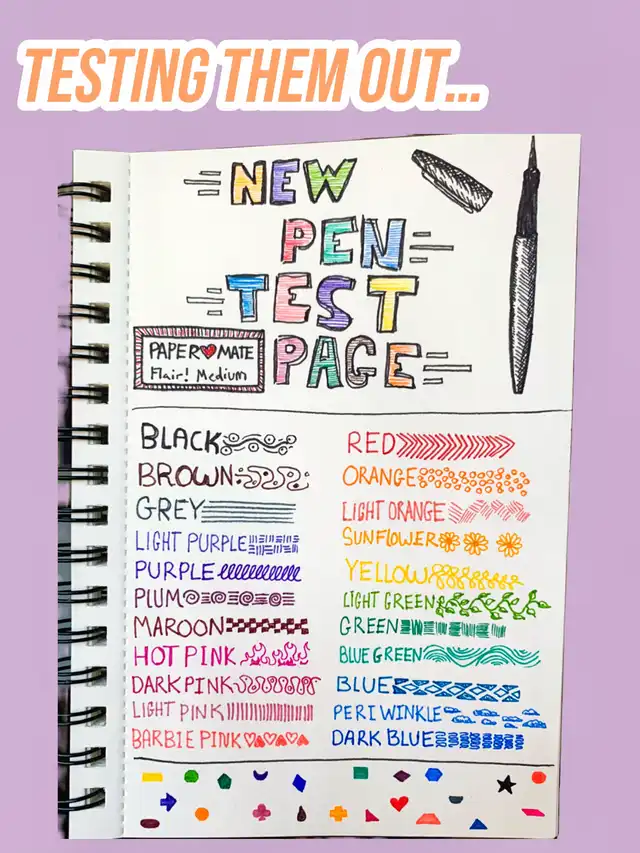 TESTING THEM OUT...
NEW
PEN
TEST
PAGE
PAPER♥MATE
Flair! Medium
BLACK
BROWN
GREY
LIGHT PURPLE
PURPLE
PLUM
MAROON
HOT PINK
DARK PINK
LIGHT PINK
BARBIE PINK
RED
ORANGE
LIGHT ORANGE
SUNFLOWER
YELLOW
LIGHT GREEN
GREEN
BLUE GREEN
BLUE
PERIWINKLE
DARK BLUE